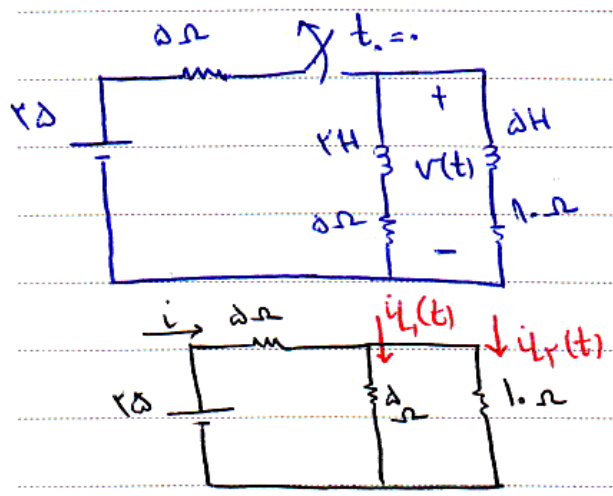 ۵Ω
t₀=۰
۲۵
+
۲H
۵H
v(t)
۵Ω
۱۰Ω
-
i
۵Ω
iL₁(t)
iL₂(t)
۲۵
۵Ω
۱۰Ω